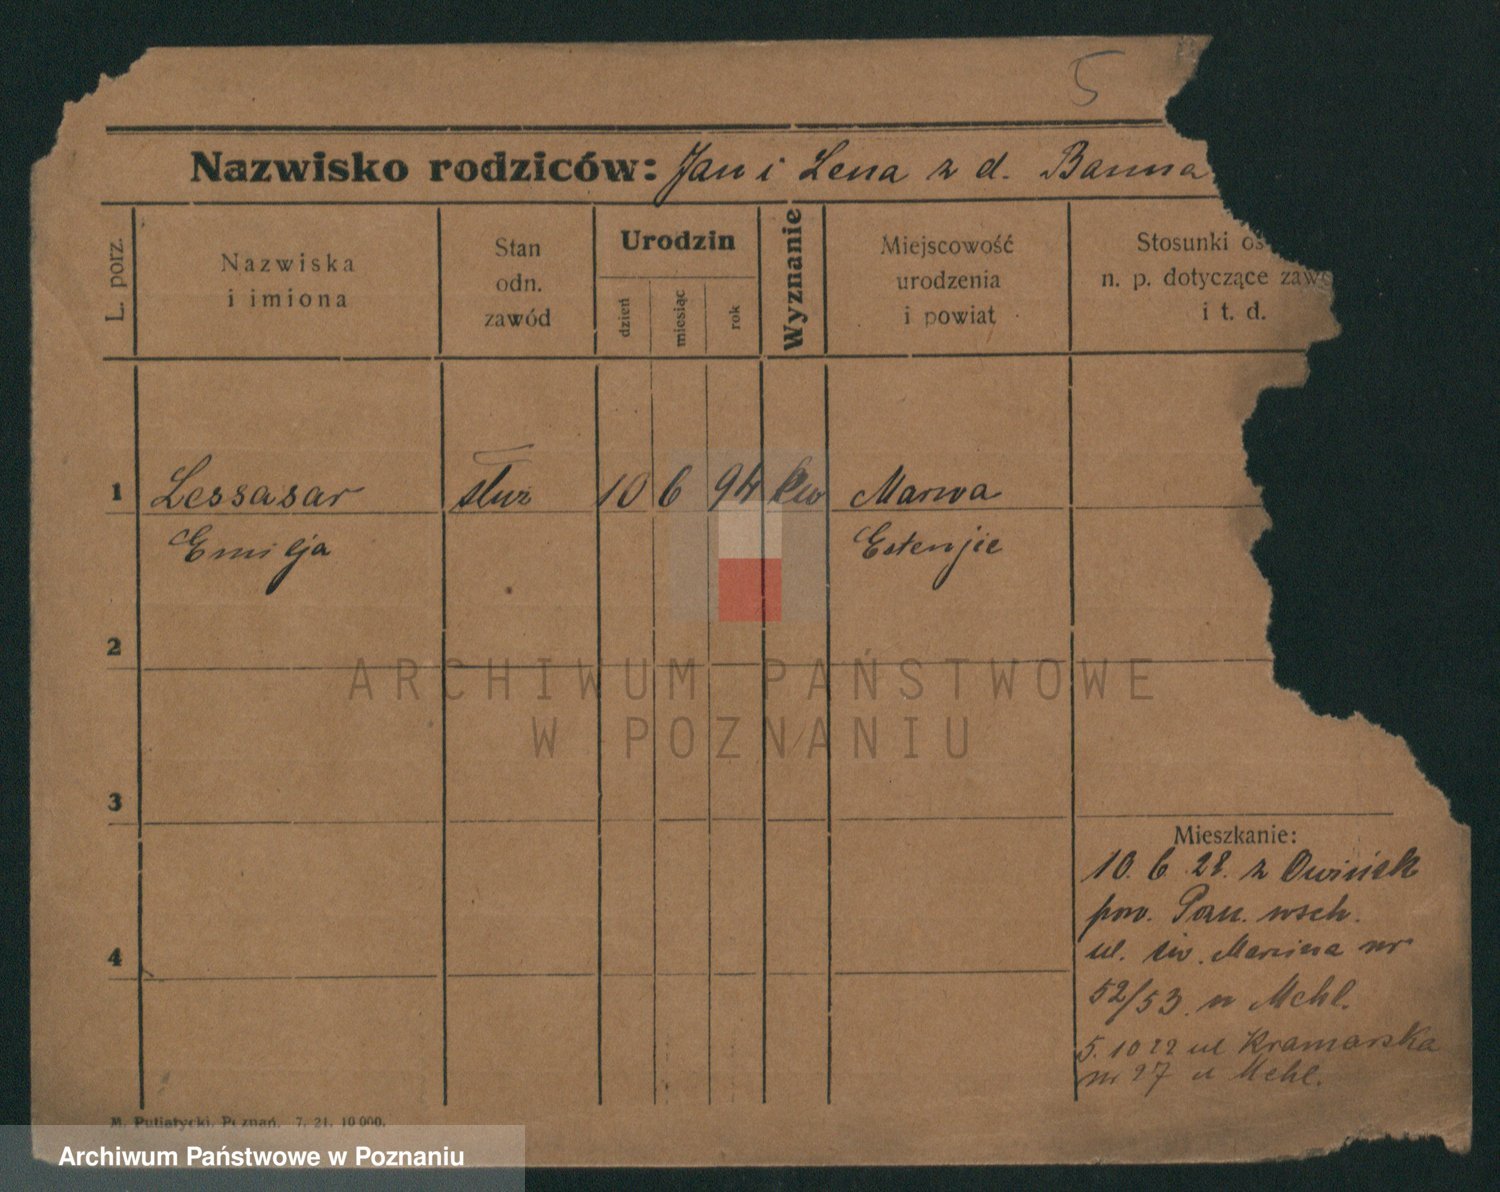 5
Nazwisko rodziców: Jan i Lena z d. Banna
L. porz.
Nazwiska
i imiona
Stan
odn.
zawód
Urodzin
dzień
miesiąc
rok
Wyznanie
Miejscowość
urodzenia
i powiat
Stosunki os
n. p. dotyczące zawo
i t. d.
1 Lessasar służ 10 6 94 ew Marwa
Emilja Estenjie
2
3
4
Mieszkanie:
10. 6 28. z Owińsk
pow. Pozn. wsch.
ul. św. Marcina nr
52/53. u Mehl.
5. 10 22 ul Kramarska
nr 27 u Mehl.
M. Putiatycki, Poznań. 7. 21. 10 000.
ARCHIWUM PAŃSTWOWE
W POZNANIU
Archiwum Państwowe w Poznaniu